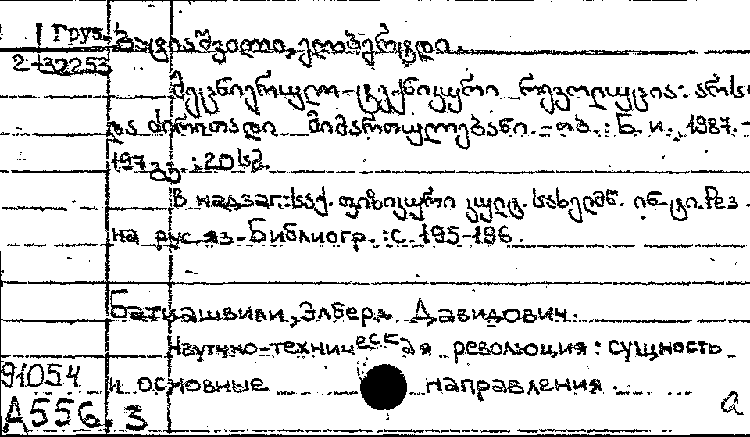 Груз.
ბაციაშვილი, ელბერტ დ.
2-32253
მეცნიერულ-ტექნიკური რევოლუცია: არსი
და ძირითადი მიმართულებანი.-თბ.: Б. и., 1987.-
197 გვ.: 20 სმ.
В надзаг.: საქ. ფიზიკური კულტ. სახელმწ. ინ-ტი. Рез.
на рус. яз.-Библиогр.: с. 195-196.
Бациашвили, Элберт Давидович.
Научно-техническая революция: сущность
91054
и основные направления.
А556.3
а